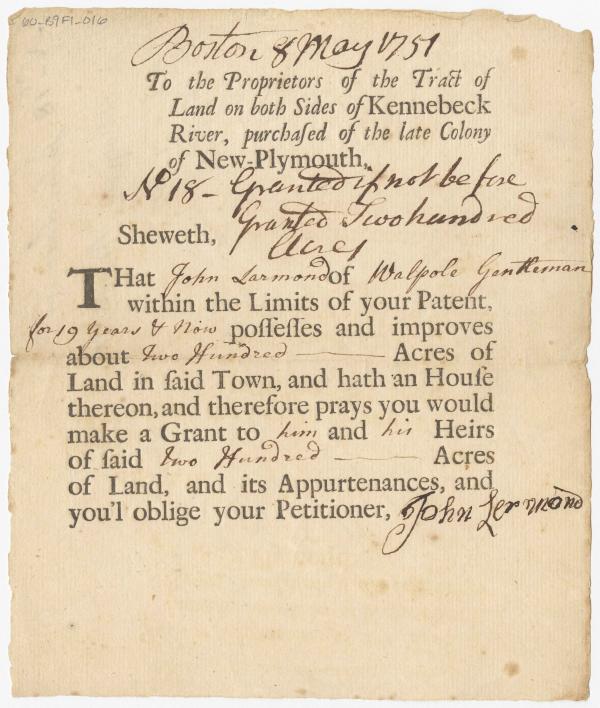 60-B9F1-016
Boston 8 May 1751
To the Proprietors of the Tract of
Land on both Sides of Kennebeck
River, purchaſed of the late Colony
of New-Plymouth,
No 18 - Granted if not before
Granted Two hundred
Acres
Sheweth,
THat John Larmond of Walpole Gentleman
within the Limits of your Patent,
for 19 Years & Now poſſeſſes and improves
about Two Hundred —— Acres of
Land in ſaid Town, and hath an Houſe
thereon, and therefore prays you would
make a Grant to him and his Heirs
of ſaid two Hundred —— Acres
of Land, and its Appurtenances, and
you'l oblige your Petitioner, John Lermond